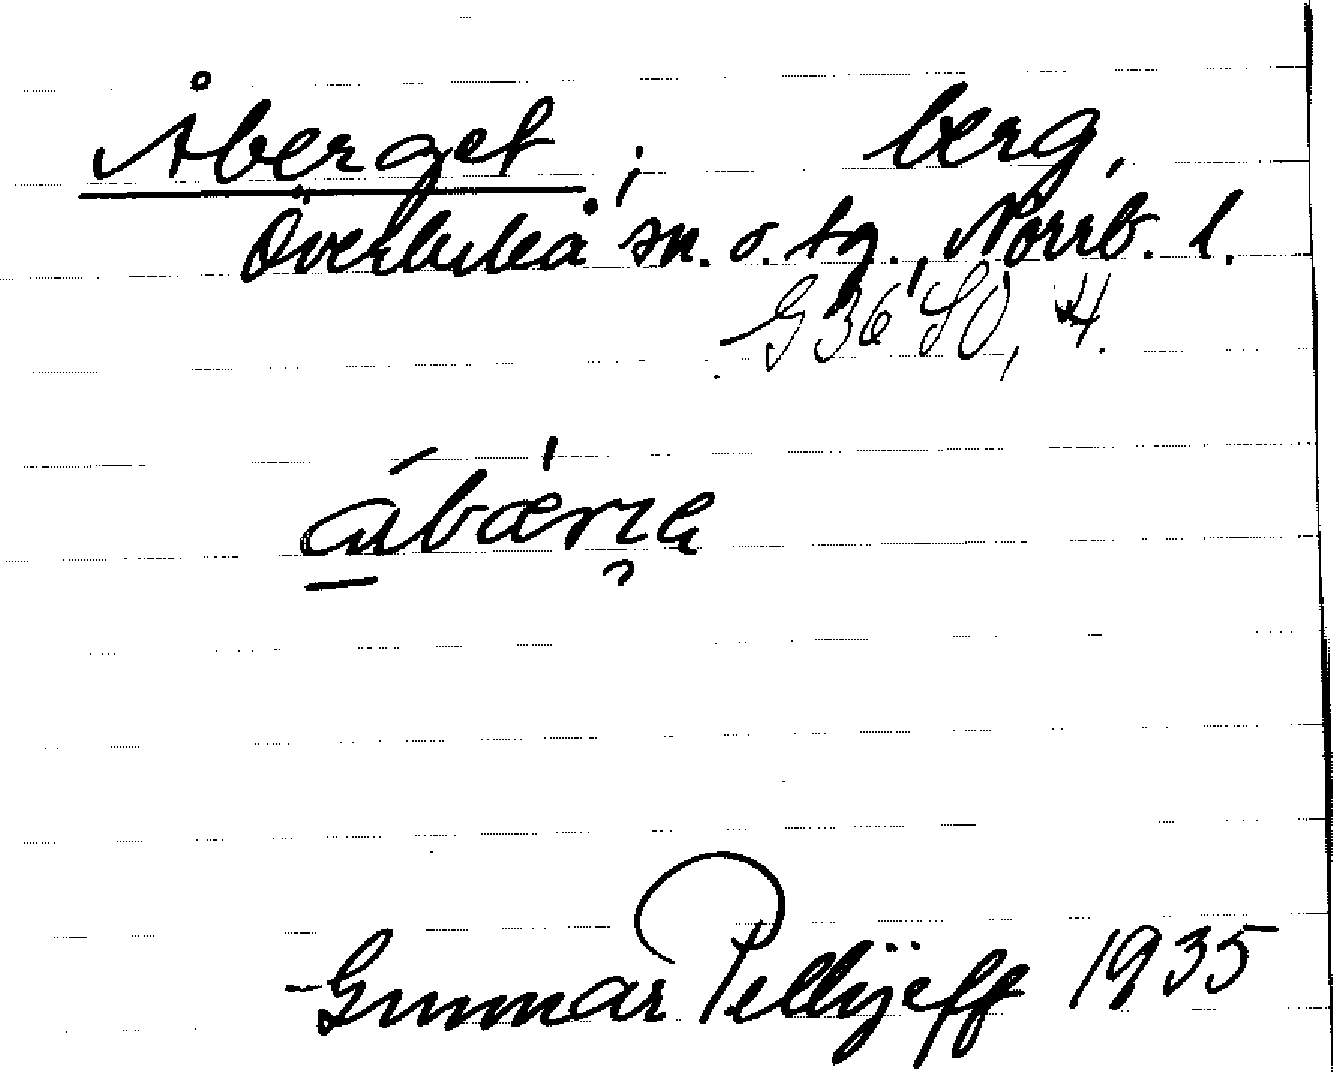 Åberget, berg,
Överluleå sn. o. tg., Norrb. l.
G36 SO, 4.
Gunnar Pellijeff 1935